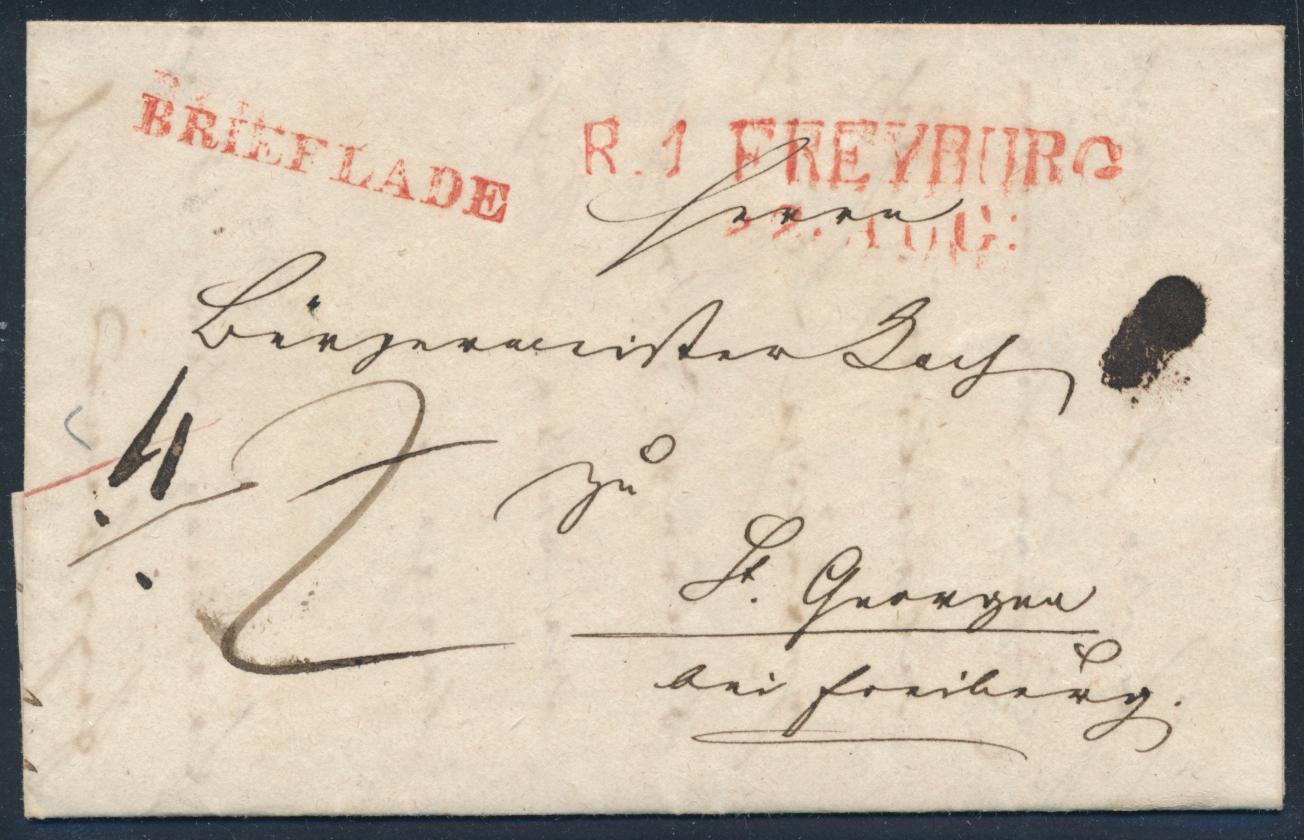 BRIEFLADE
R. 1 FREYBURG
22. AUG:
Herrn
Bürgermeister Koch
4
2
zu
St. Georgen
bei Freiburg.